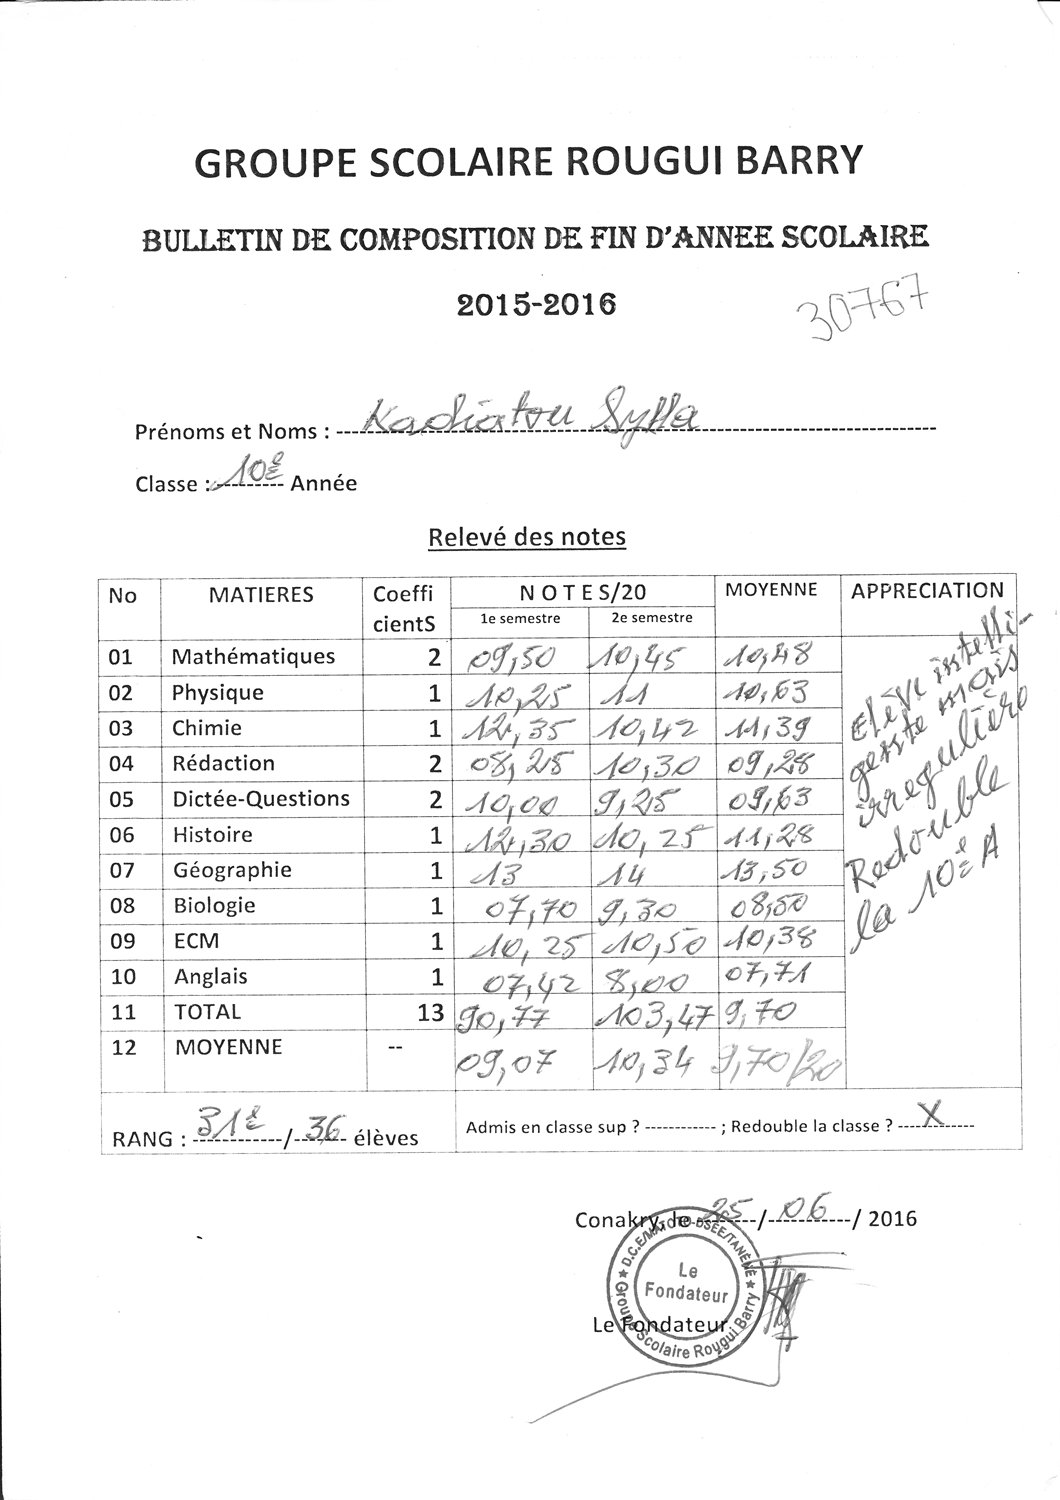 GROUPE SCOLAIRE ROUGUI BARRY
BULLETIN DE COMPOSITION DE FIN D'ANNEE SCOLAIRE
2015-2016
30767
Prénoms et Noms : Kadiatou Sylla
Classe : 10è Année
Relevé des notes
No MATIERES Coeffi cientS N O T E S/20 MOYENNE APPRECIATION
1e semestre 2e semestre
01 Mathématiques 2 09,50 10,45 10,48
02 Physique 1 10,25 11 10,63
03 Chimie 1 12,35 10,42 11,39
04 Rédaction 2 08,25 10,30 09,28
05 Dictée-Questions 2 10,00 9,25 09,63
06 Histoire 1 12,30 10,25 11,28
07 Géographie 1 13 14 13,50
08 Biologie 1 07,70 9,30 08,50
09 ECM 1 10,25 10,50 10,38
10 Anglais 1 07,42 8,00 07,71
11 TOTAL 13 90,77 103,47 9,70
12 MOYENNE -- 09,07 10,34 9,70/20
Elève intelli-
gente mais
irregulière
Redouble
la 10è A
RANG : 31è / 36 élèves
Admis en classe sup ? ------------ ; Redouble la classe ? X
Conakry, le 25 / 06 / 2016
D.C.E/MATOTO-DSEE/TANÈNÈ
Le
Fondateur
Groupe Scolaire Rougui Barry
Le Fondateur